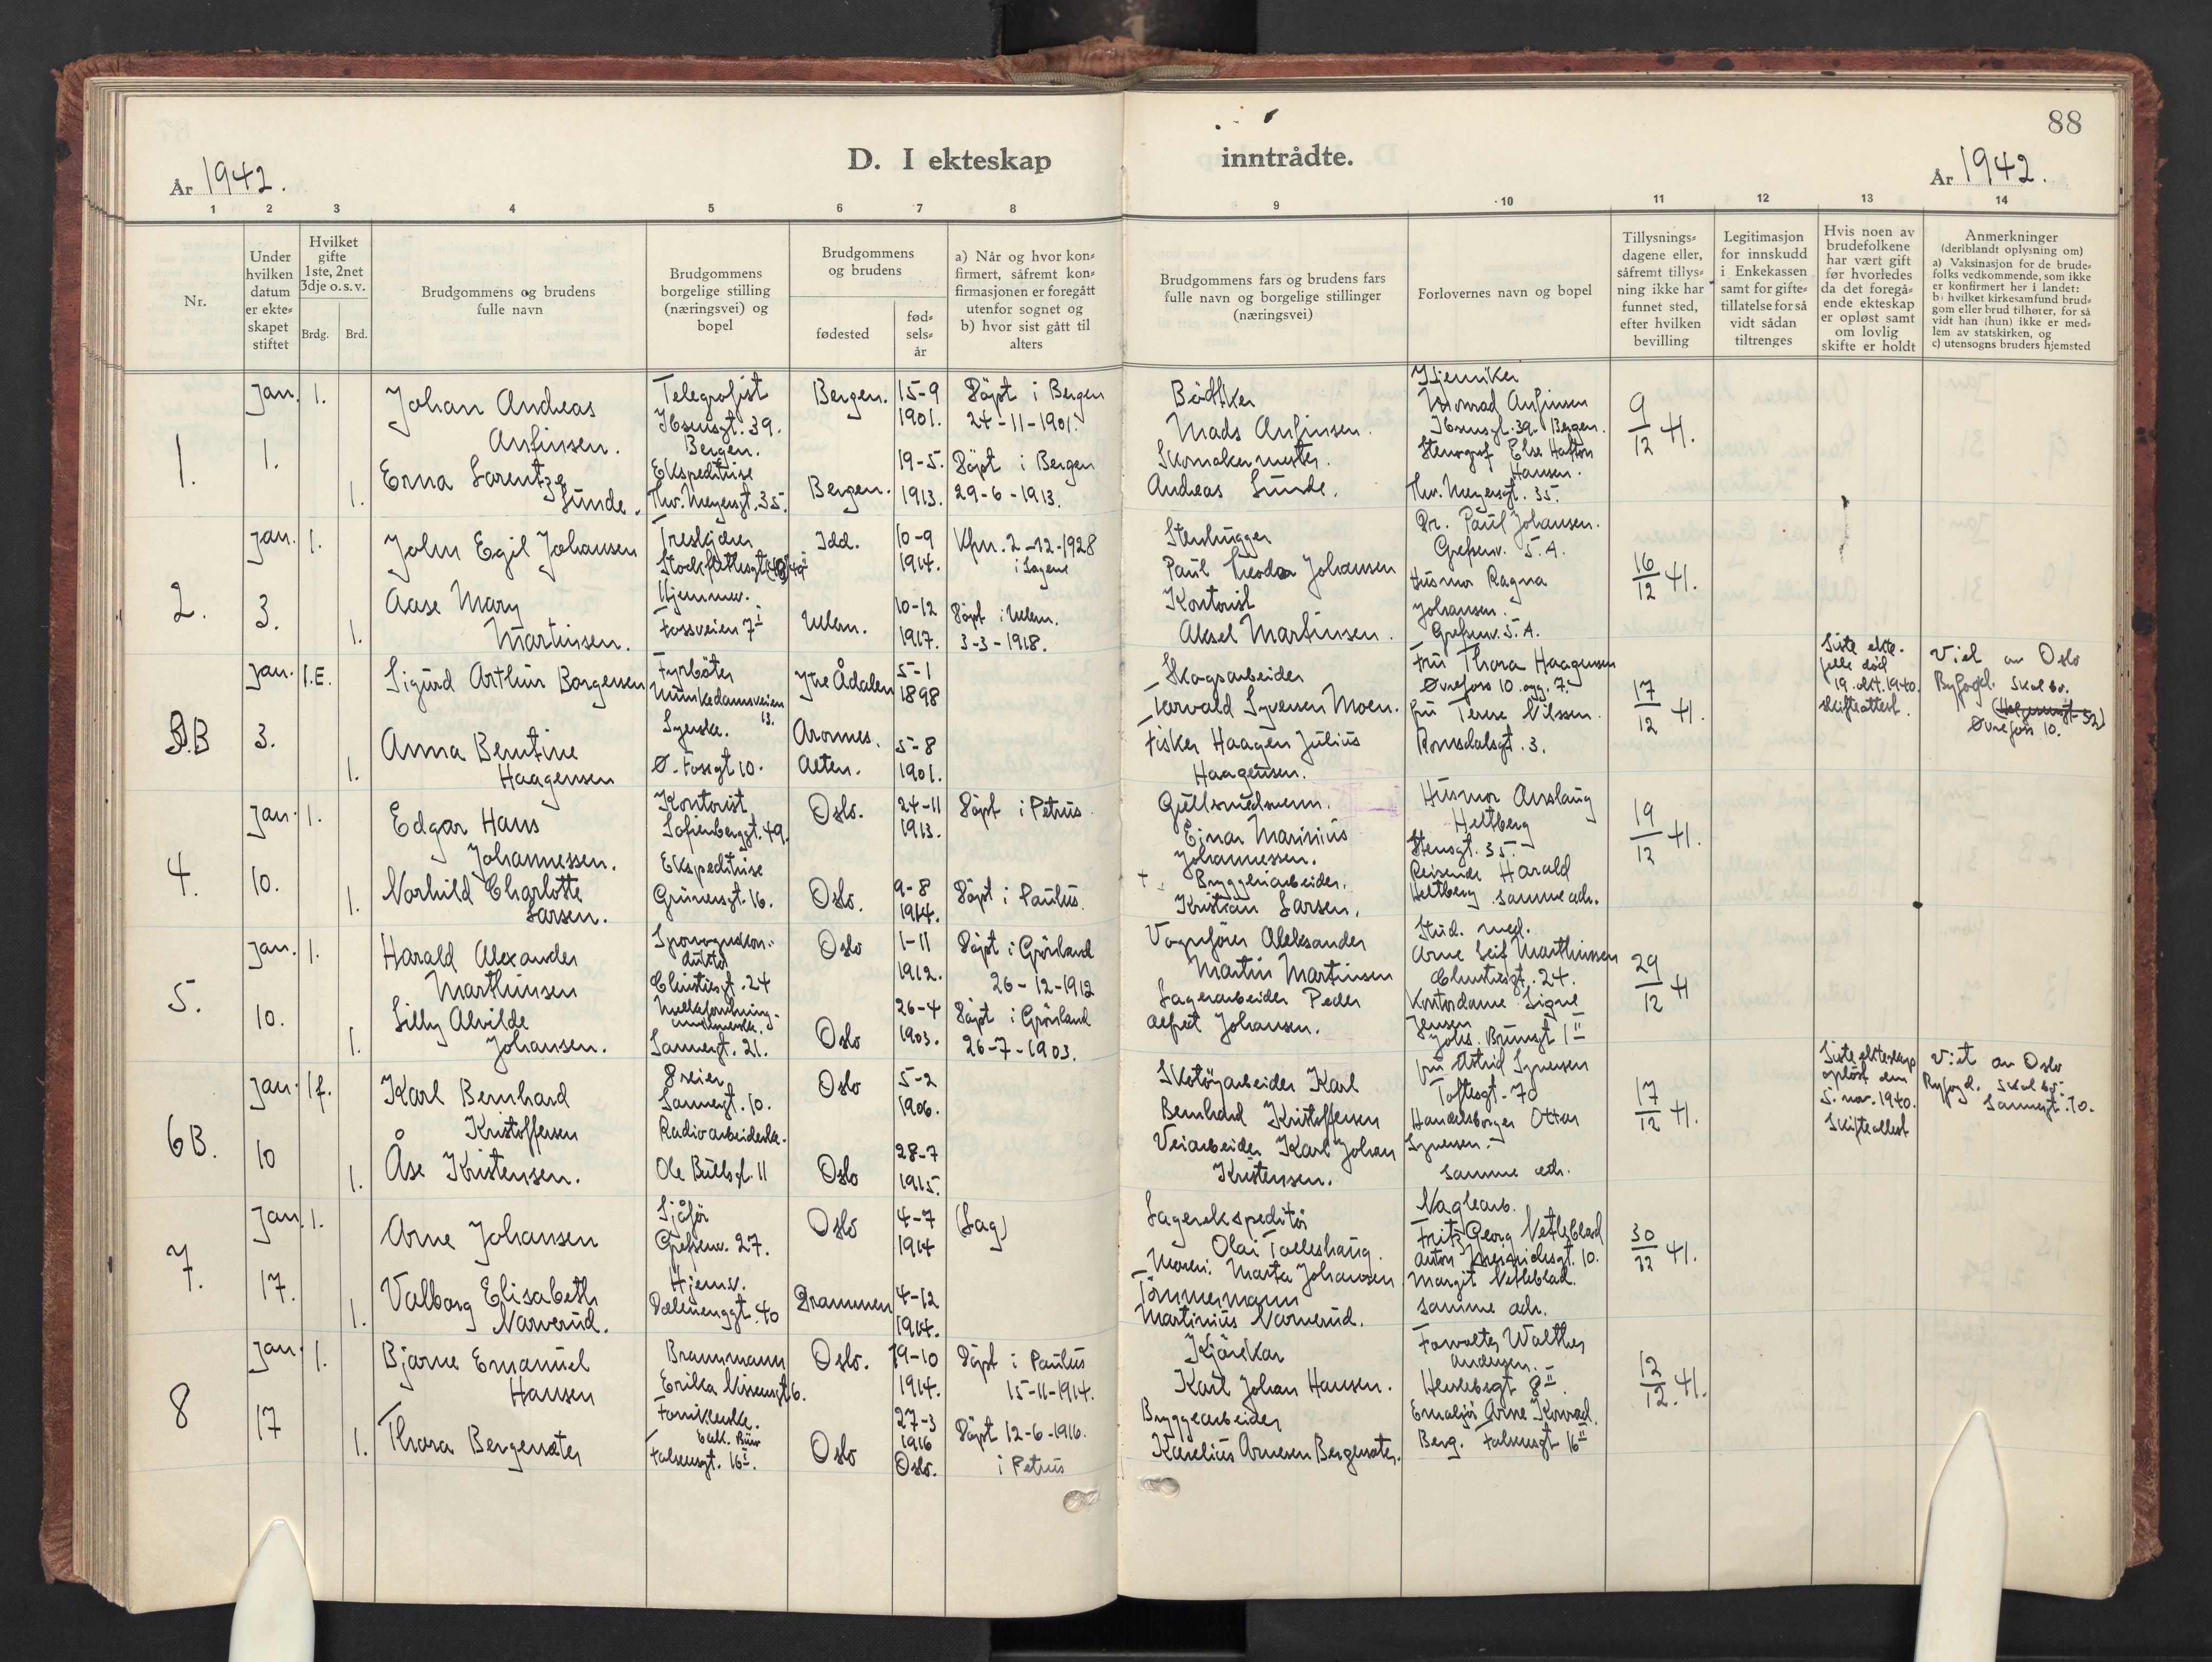 88
D. I ekteskap inntrådte.
År 1942.
År 1942.
1 2 3 4 5 6 7 8 9 10 11 12 13 14
Nr.
Under hvilken datum er ekte-skapet stiftet
Hvilket gifte 1ste, 2net 3dje o.s.v.
Brdg. Brd.
Brudgommens og brudens fulle navn
Brudgommens borgelige stilling (næringsvei) og bopel
Brudgommens og brudens
fødested
fød-sels-år
a) Når og hvor kon-firmert, såfremt kon-firmasjonen er foregått utenfor sognet og b) hvor sist gått til alters
Brudgommens fars og brudens fars fulle navn og borgelige stillinger (næringsvei)
Forlovernes navn og bopel
Tillysnings-dagene eller, såfremt tillys-ning ikke har funnet sted, efter hvilken bevilling
Legitimasjon for innskudd i Enkekassen samt for gifte-tillatelse for så vidt sådan tiltrenges
Hvis noen av brudefolkene har vært gift før hvorledes da det foregå-ende ekteskap er opløst samt om lovlig skifte er holdt
Anmerkninger (deriblandt oplysning om) a) Vaksinasjon for de brude-folks vedkommende, som ikke er konfirmert her i landet: b) hvilket kirkesamfund brud-gom eller brud tilhører, for så vidt han (hun) ikke er med-lem av statskirken, og c) utensogns bruders hjemsted
1.
Jan. 1.
1.
Johan Andreas
Anfinsen.
Telegrafist
Ibsensgt. 39.
Bergen.
Bergen.
15-9
1901.
Döpt i Bergen
24-11-1901.
Mads Anfinsen.
Konrad Anfinsen
Ibsensgt. 39. Bergen.
9/12 41.
1.
Erna Larentze
Sunde.
Ekspeditrise
Thv. Meyersgt. 35.
Bergen.
19-5.
1913.
Döpt i Bergen
29-6-1913.
Skomakermester.
Andreas Sunde.
Stenograf Else
Hansen.
Thv. Meyersgt. 35.
2.
Jan. 3.
1.
John Egil Johansen
Treskjærer
Idd.
10-9
1914.
Kfm. 2-12-1928
i Sagene
Stenhugger
Paul Theodor Johansen
Dr. Paul Johansen.
Grefsenv. 5.A.
16/12 41.
1.
Aase Mary
Martinsen.
Hjemmev.
Fossveien 7 I
Ullern.
10-12
1917.
Döpt i Ullern.
3-3-1918.
Kontorist
Aksel Martinsen.
Husmor Ragna
Johansen.
Grefsenv. 5.A.
3B
Jan. 3.
1.E.
Sigurd Arthur Borgersen
Fyrbøter
Munkedamsveien
13.
Ytre Ådalen
5-1
1898
Skogsarbeider
Torvald Syversen Moen.
Fru Thora Haagensen
Øvrefoss 10. opg. 7.
17/12 41.
Siste ekte-
felle død
19. okt. 1940.
skifteattest.
Viet av Oslo
Byfogd. Skal bo.
Øvrefoss 10.
1.
Anna Berntine
Haagensen
Syerske.
Ø. Fossgt 10.
Aronnes.
Alten.
5-8
1901.
Fisker Haagen Julius
Haagensen.
Fru Terese Nilssen.
Romsdalsgt. 3.
4.
Jan. 10.
1.
Edgar Hans
Johannessen.
Kontorist
Sofienberggt. 49.
Oslo.
24-11
1913.
Döpt i Petrus.
Gullsmedsvenn.
Einar Marinius
Johannessen.
Husmor Aaslaug
Heltberg
Stensgt. 35.
19/12 41.
1.
Norhild Charlotte
Larsen.
Ekspeditrise
Grünersgt. 16.
Oslo.
9-8
1914.
Döpt i Paulus.
Bryggeriarbeider.
Kristian Larsen.
Reisende Harald
Heltberg samme adr.
5.
Jan. 10.
1.
Harald Alexander
Marthinsen
Sporvognskon-
duktør
Christiesgt. 24
Oslo
1-11
1912.
Döpt i Grönland
26-12-1912
Vognfører Aleksander
Martin Martinsen
Stud. med.
Arne Leif Marthinsen
Christiesgt. 24.
29/12 41
1.
Lilly Alvilde
Johansen.
Sannergt. 21.
Oslo
26-4
1903.
Döpt i Grönland
26-7-1903.
Lagerarbeider Peder
Alfret Johansen.
Kontordame Signe
Jensen
Johs. Brunsgt 1 II
6B.
Jan. 10
1f.
Karl Bernhard
Kristoffersen
Dreier
Sannergt. 10.
Oslo
5-2
1906.
Skotøyarbeider Karl
Bernhard Kristoffersen
Fru Astrid Syversen
Toftesgt. 70
17/12 41.
Siste ekteskap
opløst den
5. nov. 1940.
Skifteattest
Viet av Oslo
Byfogd. Skal bo
Sannergt. 10.
1.
Åse Kristensen.
Radioarbeiderske.
Ole Bullsgt. 11
Oslo
28-7
1915.
Veiarbeider Karl Johan
Kristensen.
Handelsborger Ottar
Syversen.
samme adr.
7.
Jan. 17.
1.
Arne Johansen
Sjåför
Grefsenv. 27.
Oslo
4-7
1914
(Sag)
Lagerekspeditør
Olai Tolleshaug.
Moren: Marta Johansen
Naglearb.
Fritz Georg Netleblad
30/12 41.
1.
Valborg Elisabeth
Narverud.
Hjemv.
Dælenenggt. 40
Drammen
4-12
1914.
Tömmermann
Martinius Narverud.
Margit Netleblad.
samme adr.
8
Jan. 17
1.
Bjarne Emanuel
Hansen
Brannmann
Erika Nissensgt 6.
Oslo.
19-10
1914.
Döpt i Paulus
15-11-1914.
Kjörekar
Karl Johan Hansen.
Forvalter Walther
Andersen.
Herslebsgt 8 II.
12/12. 41.
1.
Thora Bergersæter
Falsensgt. 16 I.
Oslo
27-3
1916
Oslo.
Döpt 12-6-1916.
i Petrus
Bryggearbeider
Karelius Arnesen Bergersæter.
Emaljör Arne Konrad
Berg. Falsensgt 16 II